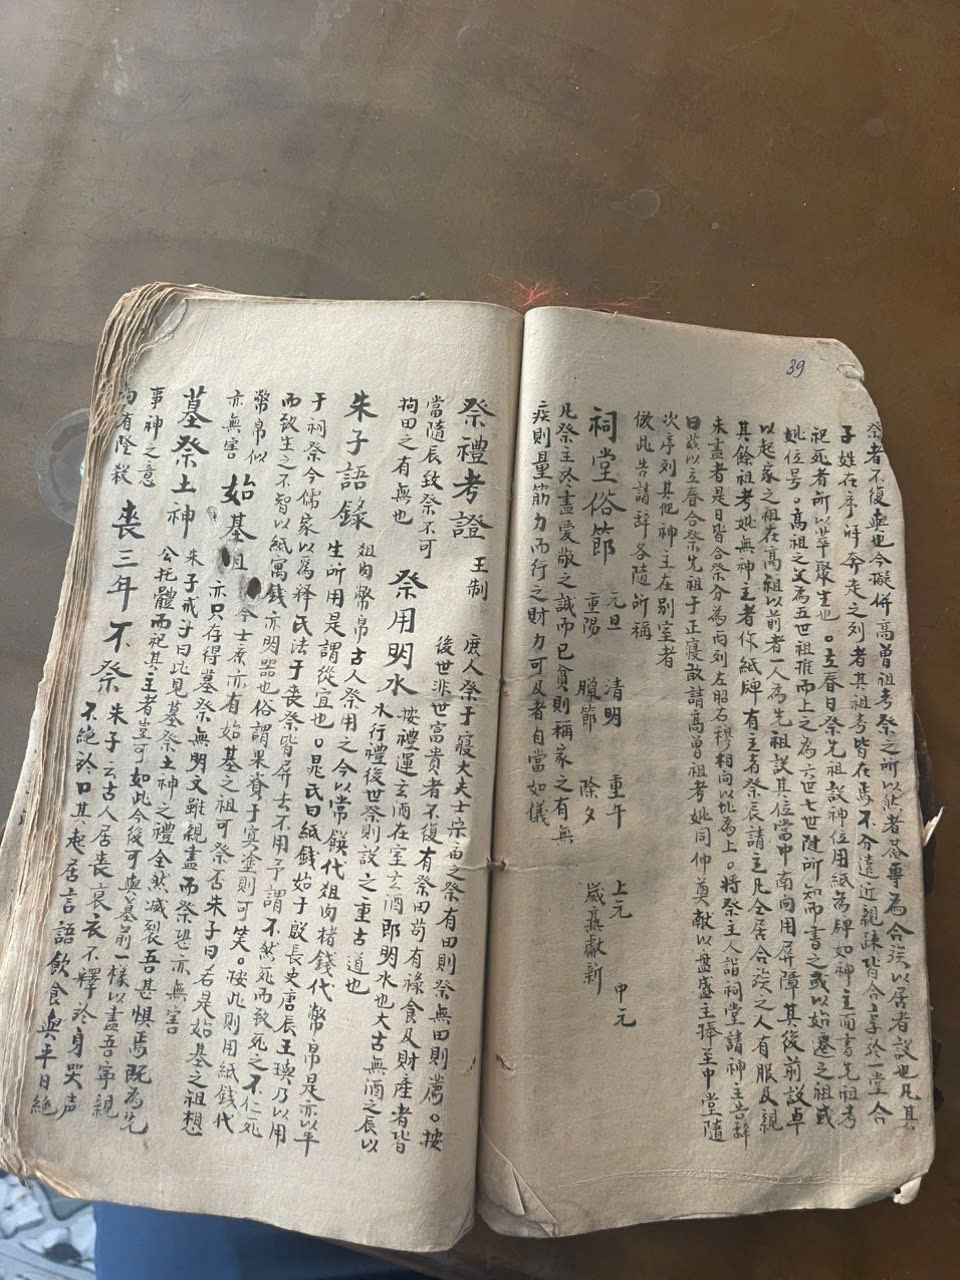 39
祭者不復與也今擬併高曾祖考祭之所以然者蓋專為合族以居者設也凡其
子姓在序拜奔走之列者其祖考皆在焉不分遠近親疎皆合享於一堂合
祀死者所以萃聚生也。立春日祭先祖設神位用紙為牌如神主而書先祖考
妣位号。高祖之父為五世祖推而上之為六世七世隨所知而書之或以始遷之祖或
以起家之祖在高祖以前者一人為先祖設其位當中南向用屏障其後前設卓
其餘祖考妣無神主者作紙牌有主者祭辰請主凡仝居合族之人有服及親
未盡者是日皆合祭分為兩列左昭右穆相向以北為上。將祭主人詣祠堂請神主告辭
曰茲以立春合祭先祖于正寢敢請高曾祖考妣同伸奠献以盤盛主捧至中堂隨
次序列其他神主在別室者
倣此告請辞各隨所稱
祠堂俗節 元旦 清明 重午 上元 中元
重陽 臘節 除夕 歲薦獻新
凡祭主於盡愛敬之誠而已貧則稱家之有無
疾則量筋力而行之財力可及者自當如儀
祭禮考證 王制 庶人祭于寢大夫士宗庙之祭有田則祭無田則薦。按
後世非世富貴者不復有祭田苟有祿食及財產者皆
當隨辰致祭不可
拘田之有無也 祭用明水 按禮運玄酒在室玄酒即明水也太古無酒之辰以
水行禮後世祭則設之重古道也
朱子語錄 俎肉幣帛古人祭用之今以常饌代俎肉楮錢代幣帛是亦以平
生所用是謂從宜也。晁氏曰紙錢始于殷長史唐辰王璵乃以用
于祠祭今儒家以為釋氏法于喪祭皆屏去不用予謂不然死而致死之不仁死
而致生之不智以紙寓錢亦明器也俗謂果資于冥塗則可笑。按此則用紙錢代
幣帛似
亦無害 始基祖 今士庶亦有始基之祖可祭否朱子曰若是始基之祖想
亦只存得墓祭無明文雖親盡而祭恐亦無害
墓祭土神 朱子戒子曰比見墓祭土神之禮全然減裂吾甚懼焉既為先
公托體而祀其主者豈可如此今後可與墓前一樣以盡吾寧親
事神之意
勿有隆殺 喪三年不祭 朱子云古人居喪衰衣不釋於身哭声
不絕於口其起居言語飲食與平日絕